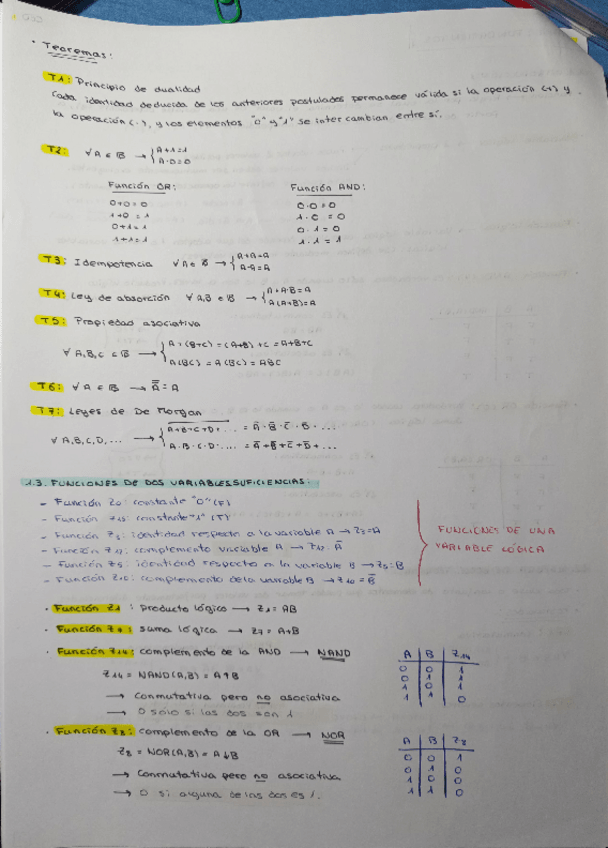 · Teoremas:
T1: Principio de dualidad
Cada identidad deducida de los anteriores postulados permanece válida si la operación (+) y
la operación (·), y los elementos "0" y "1" se intercambian entre sí.
T2: ∀A ∈ B → { A+1=1
A·0=0
Función OR:
0+0=0
1+0=1
0+1=1
1+1=1
Función AND:
0·0=0
1·0=0
0·1=0
1·1=1
T3: Idempotencia ∀A∈B → { A+A=A
A·A=A
T4: Ley de absorción ∀A,B ∈ B → { A+A·B=A
A(A+B)=A
T5: Propiedad asociativa
∀A,B,C ∈ B → { A+(B+C)=(A+B)+C=A+B+C
A(BC)=A(BC)=ABC
T6: ∀A ∈ B → A̿=A
T7: Leyes de De Morgan
∀A,B,C,D,... → { A+B+C+D+... = A̅·B̅·C̅·D̅·...
A·B·C·D·... = A̅+B̅+C̅+D̅+...
1.3. FUNCIONES DE DOS VARIABLES. SUFICIENCIAS.
- Función Z0: constante "0" (F)
- Función Z15: constante "1" (T)
- Función Z3: identidad respecto a la variable A → Z3=A
- Función Z12: complemento variable A → Z12=A̅
- Función Z5: identidad respecto a la variable B → Z5=B
- Función Z10: complemento de la variable B → Z10=B̅
FUNCIONES DE UNA
VARIABLE LÓGICA
· Función Z1: producto lógico → Z1=AB
· Función Z7: suma lógica → Z7=A+B
· Función Z14: complemento de la AND → NAND
Z14 = NAND(A,B) = A↑B
→ Conmutativa pero no asociativa
→ 0 sólo si las dos son 1
A B Z14
0 0 1
0 1 1
1 0 1
1 1 0
· Función Z8: complemento de la OR → NOR
Z8 = NOR(A,B) = A↓B
→ Conmutativa pero no asociativa
→ 0 si alguna de las dos es 1.
A B Z8
0 0 1
0 1 0
1 0 0
1 1 0